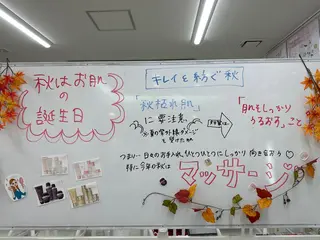 キレイを紡ぐ秋
秋はお肌
の
誕生日
「秋枯れ肌」
に要注意。
※夏の紫外線ダメージ
を受けた肌
「肌をしっかり
うるおす」こと
つまり…日々のお手入れ、ひとつひとつにしっかり向き合おう♡
特に今年の秋は
マッサージ